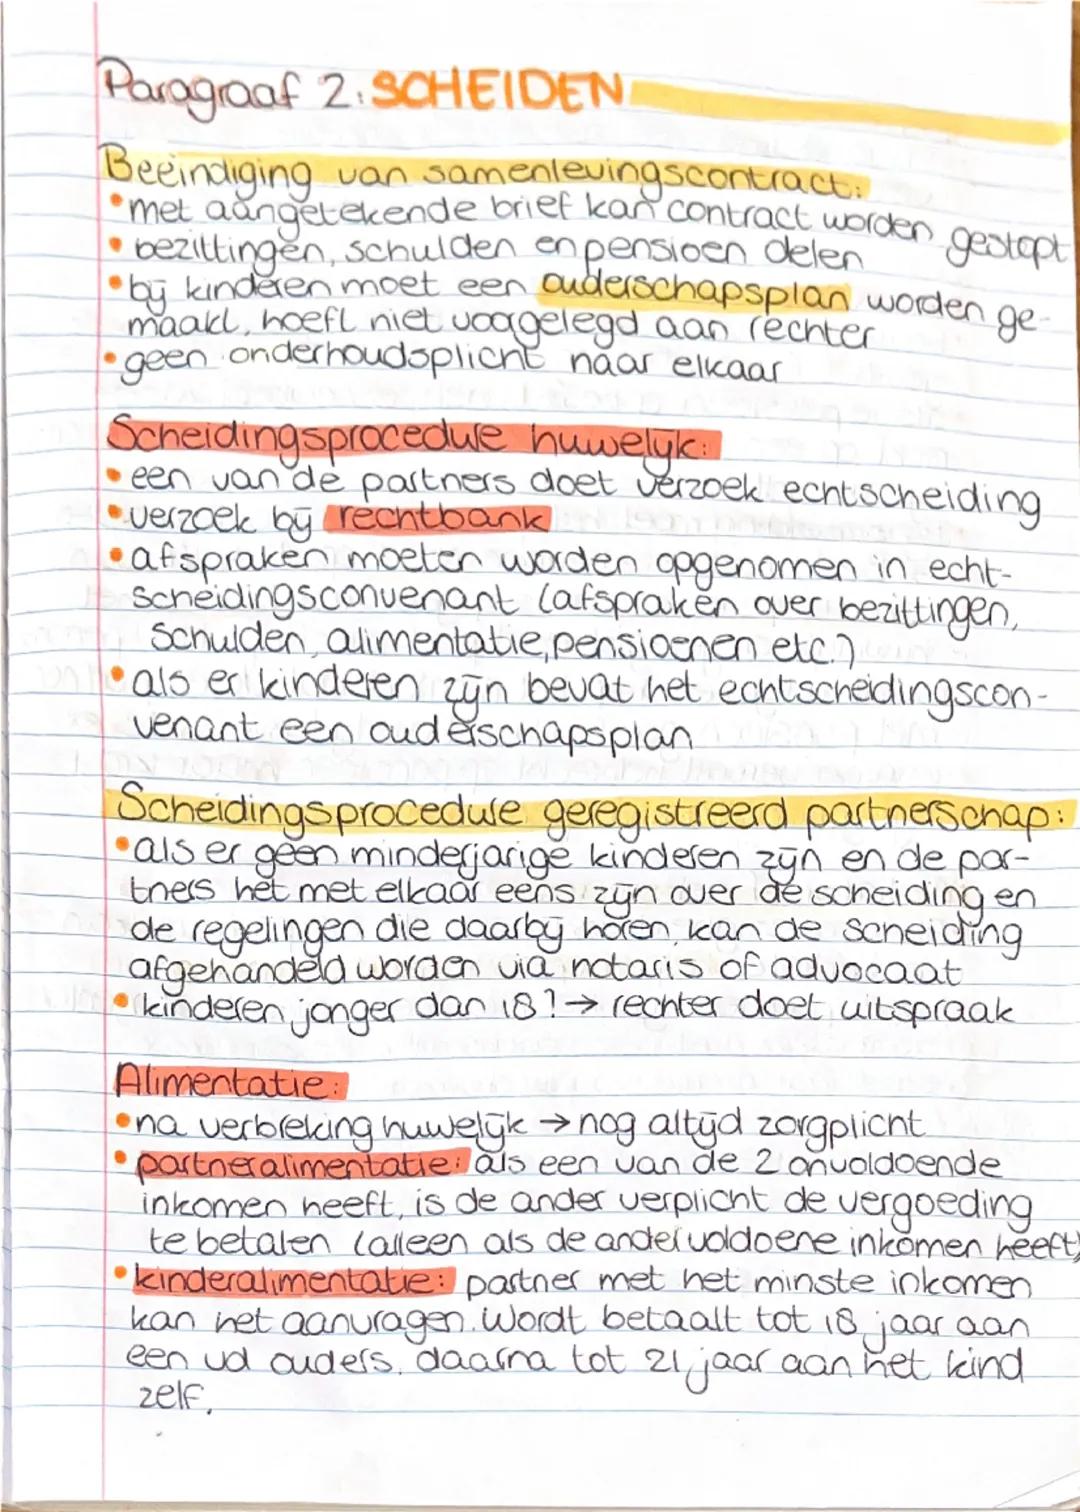 Paragraaf 2: SCHEIDEN
Beëindiging van samenlevingscontract:
• met aangetekende brief kan contract worden gestopt
• bezittingen, schulden en pensioen delen
• bij kinderen moet een ouderschapsplan worden ge-
maakt, hoeft niet voorgelegd aan rechter
• geen onderhoudsplicht naar elkaar
Scheidingsprocedure huwelijk:
• een van de partners doet verzoek echtscheiding
• verzoek bij rechtbank
• afspraken moeten worden opgenomen in echt-
scheidingsconvenant (afspraken over bezittingen,
schulden, alimentatie, pensioenen etc.)
• als er kinderen zijn bevat het echtscheidingscon-
venant een ouderschapsplan
Scheidingsprocedure geregistreerd partnerschap:
• als er geen minderjarige kinderen zijn en de par-
tners het met elkaar eens zijn over de scheiding en
de regelingen die daarbij horen, kan de scheiding
afgehandeld worden via notaris of advocaat
• kinderen jonger dan 18? → rechter doet uitspraak
Alimentatie:
• na verbreking huwelijk → nog altijd zorgplicht
• partneralimentatie: als een van de 2 onvoldoende
inkomen heeft, is de ander verplicht de vergoeding
te betalen (alleen als de ander voldoene inkomen heeft)
• kinderalimentatie: partner met het minste inkomen
kan het aanvragen. Wordt betaalt tot 18 jaar aan
een vd ouders, daarna tot 21 jaar aan het kind
zelf.